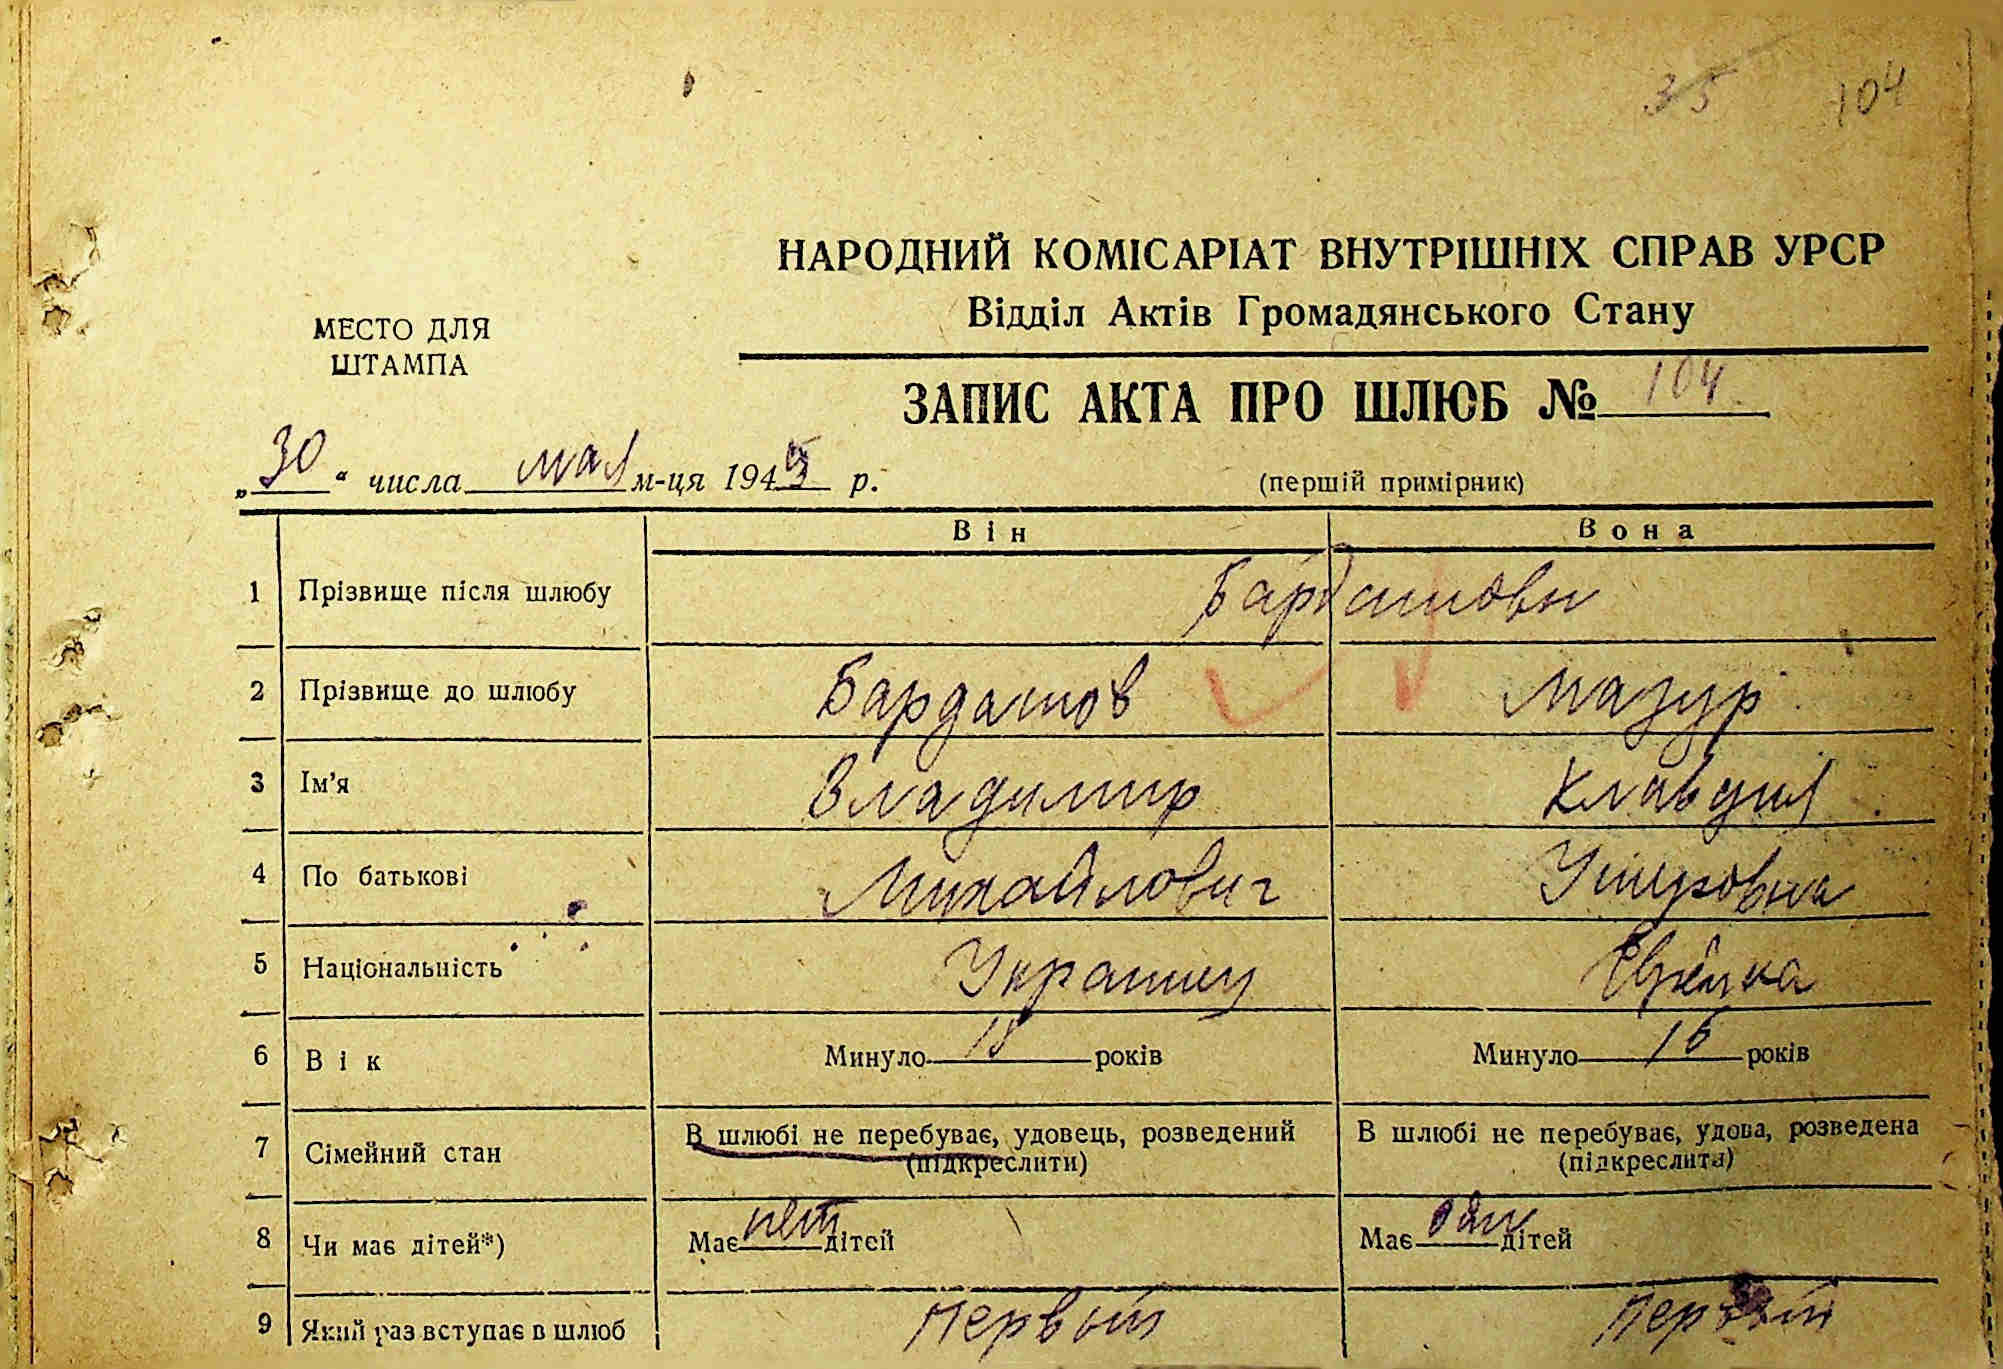 35 104
НАРОДНИЙ КОМІСАРІАТ ВНУТРІШНІХ СПРАВ УРСР
Відділ Актів Громадянського Стану
МЕСТО ДЛЯ
ШТАМПА
ЗАПИС АКТА ПРО ШЛЮБ № 104
„30“ числа мая м-ця 1945 р.
(першій примірник)
Він Вона
1 Прізвище після шлюбу Бардашовы
2 Прізвище до шлюбу Бардашов Мазур
3 Ім'я Владимир Клавдия
4 По батькові Михайлович
5 Національність Украинец Еврейка
6 Вік Минуло 18 років Минуло 16 років
7 Сімейний стан В шлюбі не перебуває, удовець, розведений В шлюбі не перебуває, удова, розведена
(підкреслити) (підкреслити)
8 Чи має дітей*) Має нет дітей Має дітей
9 Який раз вступає в шлюб Первый Первый